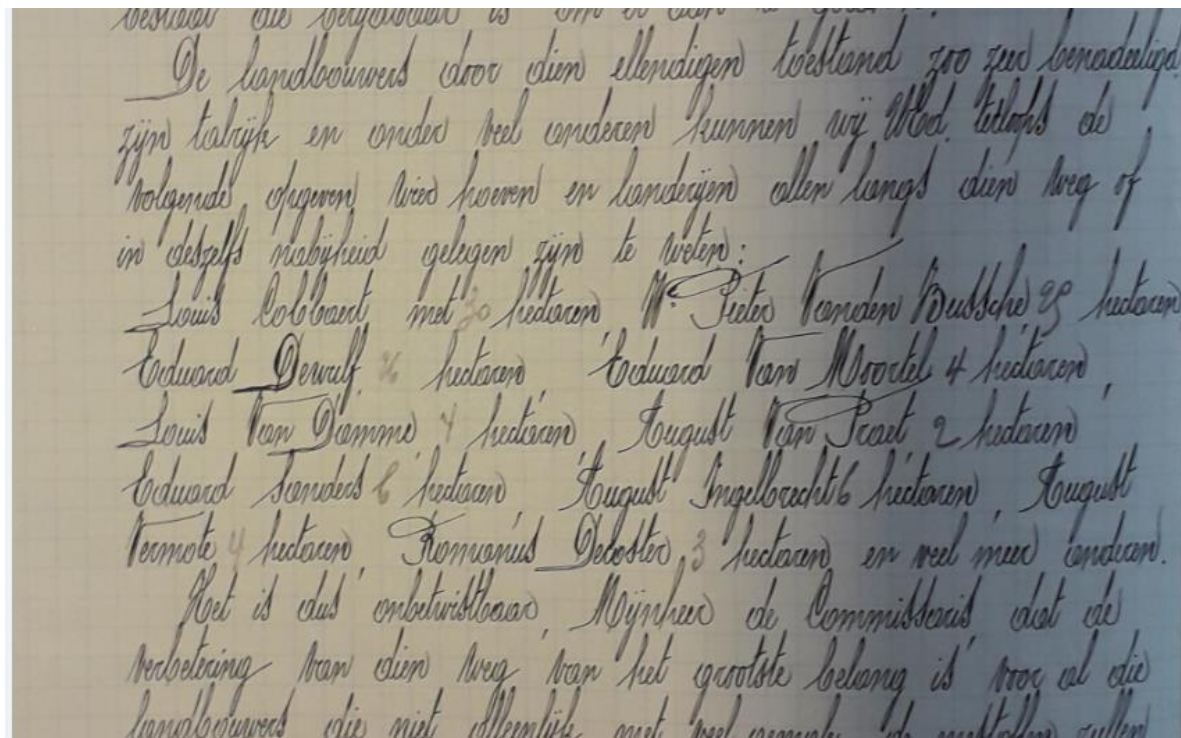 bestuur die bergbaar is om er aan te
De landbouwers door dien ellendigen toestand zoo zeer benadeeligd
zijn talrijk en onder veel anderen kunnen wij UEd. terloops de
volgende opgeven wier hoeven en landerijen allen langs dien weg of
in deszelfs nabijheid gelegen zijn te weten:
Louis Cobbaert met 30 hectaren, We Pieter Vanden Bussche 25 hectaren,
Eduard Dewulf hectaren, Eduard Van Moortel 4 hectaren,
Louis Van Damme 4 hectaren, August Van Praet 2 hectaren
Eduard Sanders 6 hectaren, August Ingelbrecht 6 hectaren, August
Vermote 4 hectaren, Romanus Decoster, 3 hectaren en veel meer anderen.
Het is dus onbetwistbaar, Mijnheer de Commissaris dat de
verbetering van dien weg van het grootste belang is voor al die
landbouwers die niet alleenlijk met veel gemak de meststoffen zullen